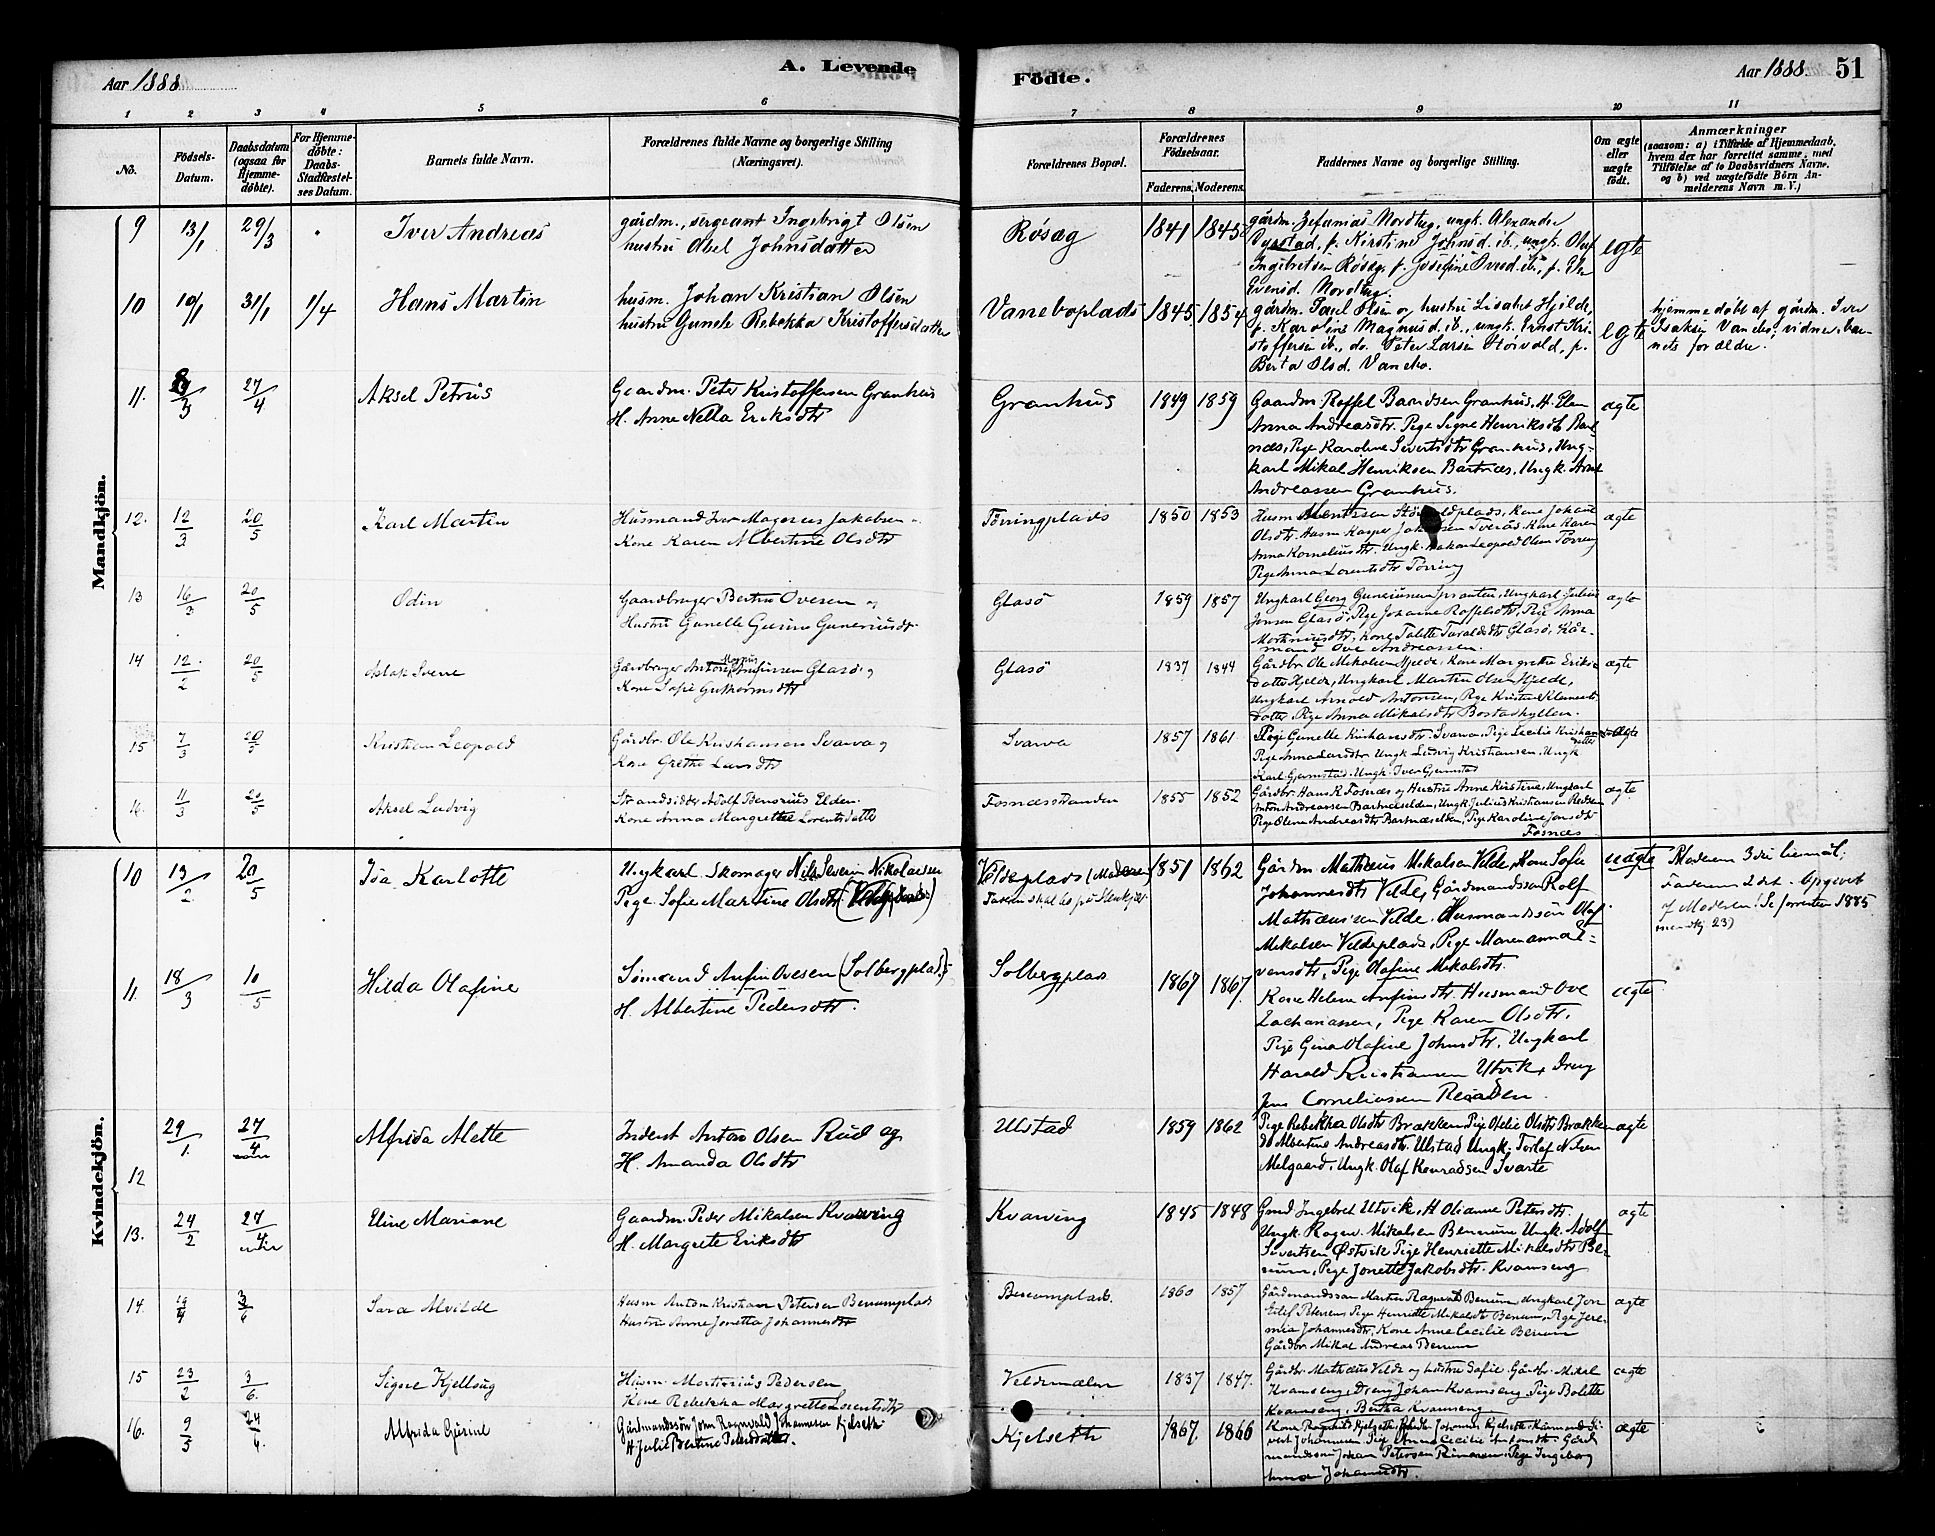 Aar 1888
A. Levende
Födte.
Aar 1888.
51
1 2 3 4 5 6 7 8 9 10 11
No.
Födsels-Datum.
Daabsdatum (ogsaa for Hjemme-döbte).
For Hjemme-döbte: Daabs-Stadfæstel-ses Datum.
Barnets fulde Navn.
Forældrenes fulde Navne og borgerlige Stilling (Næringsvei).
Forældrenes Bopæl.
Forældrenes Födselsaar.
Faderens. Moderens.
Faddernes Navne og borgerlige Stilling.
Om ægte eller uægte födt.
Anmærkninger
(saasom: a) i Tilfælde af Hjemmedaab, hvem der har forrettet samme, med Tilföielse af to Daabsvidners Navne. og b) ved uægtefödte Börn An-melderens Navn m. V.)
Mandkjön.
9 13/1 29/3 Iver Andreas
gårdm., sergeant Ingebrigt Olsen
hustru Johnsdatter
Røsæg 1841 1845
gårdm. Zefanias Nordtug, ungk. Alexander
Dyrstad, p. Kirstine Johnsd. ib., ungk. Oluf
Ingebretsen Røsæg, p. Josefine
Evensd. Nordtug.
egte
10 10/1 31/1 1/4 Hans Martin
husm. Johan Kristian Olsen
hustru Gunele Rebekka Kristoffersdatter
Vaneboplads 1845 1854
gårdm. Paul Olsen og hustru Lisabet Hjelde,
p. Karoline Magnusd. ib., ungk. Ernst Kri-
stoffersen ib., do. Peter Larsen p.
Berta Olsd. Vanebo.
egte
hjemmedøbt af gårdm. Iver
Isaksen vidner: bar-
nets forældre.
11. 27/4 Aksel Petrus
Gaardm. Peter Kristoffersen Granhus
H. Anne Nella Eriksdtr
Granhus 1849 1859
Gaardm. Roffel Baardsen Granhus, H. Elen
Anna Andreasdtr. Pige Signe Henriksdtr Bart-
næs, Pige Karoline Sivertsdtr Granhus, Ung-
karl Mikal Henriksen Bartnæs, Ungk. Arne
Andreassen Granhus.
ægte
12. 12/3 20/5 Karl Martin
Husmand Iver Magnus Jakobsen
Kone Karen Albertine Olsdtr
Tørringplads 1850 1853
Olsdtr. Husm Kasper Kone Karen
Anna Korneliusdtr. Ungk. Leopold Olsen Tørring
Pige Anna Lorentsdtr Tørring
ægte
13 16/3 20/5 Odin
Gaardbruger Ovesen og
Hustru Gunelle Gurine Guneriusdtr.
Glasø 1859 1857
Ungkarl Georg Guneriussen Ungkarl Julius
Jensen Glasø, Pige Johanne Roffelsdtr, Pige Anna
Kone
mand Ove Andreassen.
ægte
14 12/2 20/5 Aslak Svene
Gårdbruger Anton Magnus Glasø og
Kone Sofie Guthormsdtr
Glasø 1837 1844
Gårdbr. Ole Mikalsen Hjelde, Kone Margrethe Eriks-
datter Hjelde, Ungkarl Martin Olsen Hjelde,
Ungkarl Arnold Antonsen, Pige Kristine Klements-
datter, Pige Anna Mikalsdtr Bostadhyllen.
ægte
15 7/3 20/5 Kristian Leopold
Gårdbr. Ole Kristiansen Svarva og
Kone Grethe Larsdtr
Svarva 1857 1861
Pige Gunelle Kristiansdtr. Svarva, Pige Cecilie Kristian
datter
Pige Anna Larsdtr Ungk Ludvig Kristiansen, Ungk
Karl Gjemstad. Ungk. Iver Gjemstad
ægte
16. 11/3 20/5 Aksel Ludvig
Strandsidder Adolf Benonius Elden
Kone Anna Margrethe Lorentsdatter
Fosnæsstranden 1855 1852
Gårdbr Hans R. Fosnæs og Hustru Anne Kirstine, Ungkarl
Anton Andreassen Bartnæselden, Ungk Julius Kristiansen
Pige Oline Andreasdtr Bartnæselden, Pige Karoline Jonsdtr
Fosnæs
ægte
Kvindekjön.
10 13/2 20/5 Ida Karlotte
Ungkarl Skomager Nils Severin Nikolaisen
Pige Sofie Martine Olsdtr
Veldeplads (Moderen)
Faderen skal bo på Stenkjær
1851 1862
Gårdm Mathæus Mikalsen Velde, Kone Sofie
Johannesdtr Velde, Gårdmandssøn Rolf
Mathæusen Velde. Husmandssøn Olaf
Mikalsen Veldeplads, Pige Marenanna
Pige Olafine Mikalsdtr.
uægte
Moderen 3die Leiermål;
Faderen 2det. Opgivet
af Moderen. (Se forresten 1885
mandkj. 23)
11. 18/3 10/5 Hilda Olafine
Sømand Anfin Ovesen (Solbergplads)
H. Albertine Pedersdtr.
Solbergplads 1867 1867.
Kone Helene Anfinsdtr. Husmand Ove
Zachariassen, Pige Karen Olsdtr,
Pige Gina Olafine Johnsdtr, Ungkarl
Harald Kristiansen Utvik, Dreng
Jens Corneliussen
ægte
12 29/1 27/4 Alfrida Alette
Inderst Anton Olsen Rud og
H. Amanda Olsdtr
Ulstad 1859 1862
Pige Rebekka Olsdtr Brækken Pige Ofelie Olsdtr Brækken
do Albertine Andreasdtr. Ulstad Ungk. Torlaf Nilsen
Melgaard, Ungk. Olaf Konradsen Svarte
ægte
13. 24/2 27/4 Eline Mariane
Gaardm. Peder Mikalsen Kvarving
H. Margrete Eriksdtr
Kvarving 1845 1848
Gmd Ingebret Utvik, H Olianne Petersdtr.
Ungk. Ragnv. Mikalsen Benrum Ungk. Adolf
Sivertsen Østvik Pige Henriette Mikalsdtr Be-
num, Pige Jonette Jakobsdtr. Kvamseng
ægte
14. 3/6 Sara Alvilde
Husm Anton Kristian Petersen Benumplads
Hustru Anne Jonetta Johannesdtr
Benumplads. 1860 1857
Gårdmandssøn Martin Ragnvald Benum, Ungkarl Jon
Petersen Pige Henriette Mikalsdtr Benum, Pige Jere-
mia Johannesdtr, Kone Anne Cecilie Benum
Gårdbr. Mikal Andreas Benum
ægte
15 23/2 3/6. Signe Kjellaug
Husm. Martinius Pedersen
Kone Rebekka Margrethe Lorentsdtr
1837 1847.
Gårdbr. Mathæus Velde og hustru Sofie. Gårdbr. Mikal
Kvamseng, Dreng Johan Kvamseng Pige Bolette
Kvamseng, Bertha Kvamseng
ægte
16. 24/4. Alfrida Gurine
Gårdmandssøn John Ragnvald Johannesen Kjelseth
H Julie Bertine Pedersdatter.
Kjelseth 1867. 1866
Pige Anna Cecilie
mandssøn Johan Petersen Pige Ingeborg
Anna Johannesdtr.
ægte